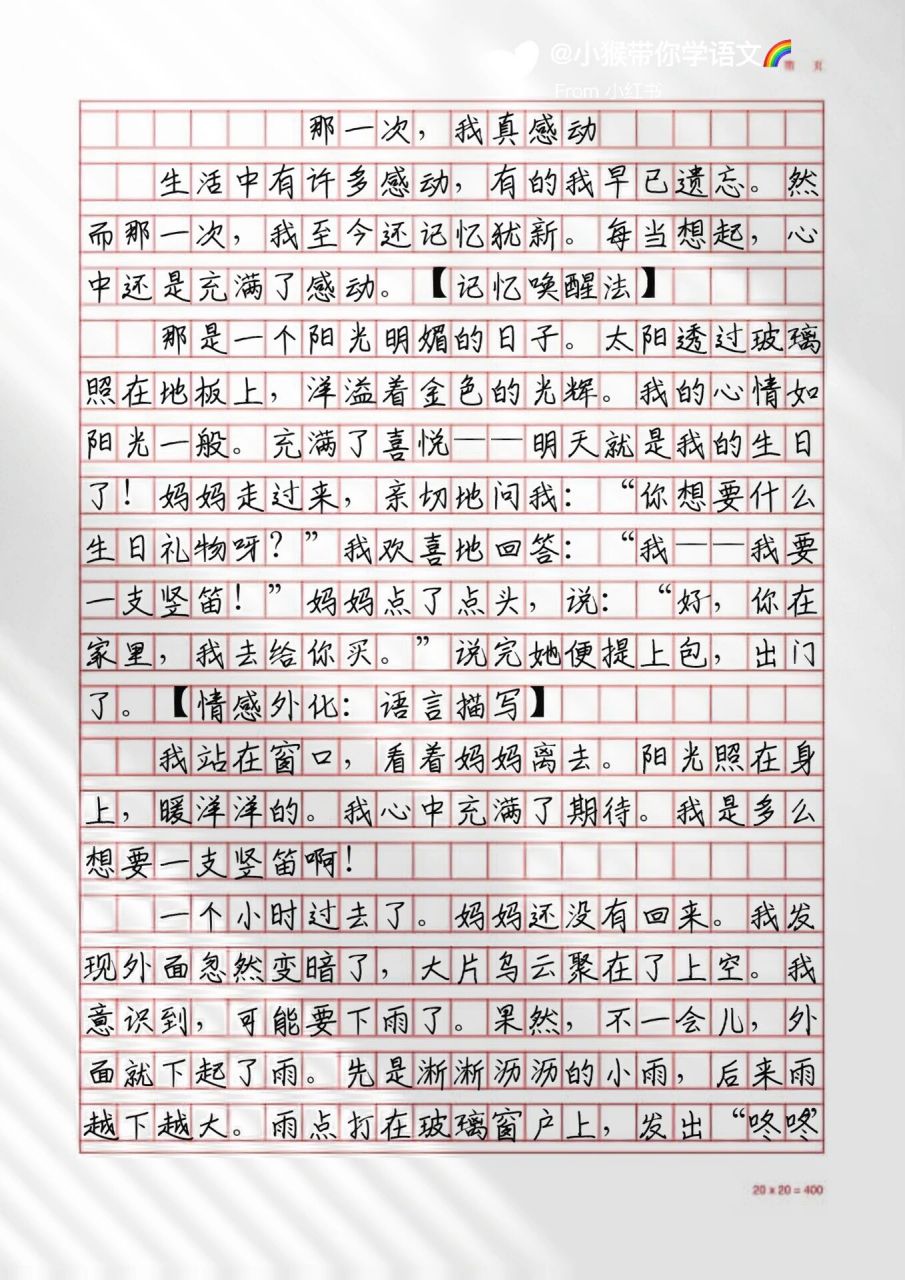 @小猴带你学语文🌈
From 小红书
第 页
那一次，我真感动
生活中有许多感动，有的我早已遗忘。然
而那一次，我至今还记忆犹新。每当想起，心
中还是充满了感动。【记忆唤醒法】
那是一个阳光明媚的日子。太阳透过玻璃
照在地板上，洋溢着金色的光辉。我的心情如
阳光一般。充满了喜悦——明天就是我的生日
了！妈妈走过来，亲切地问我：“你想要什么
生日礼物呀？”我欢喜地回答：“我——我要
一支竖笛！”妈妈点了点头，说：“好，你在
家里，我去给你买。”说完她便提上包，出门
了。【情感外化：语言描写】
我站在窗口，看着妈妈离去。阳光照在身
上，暖洋洋的。我心中充满了期待。我是多么
想要一支竖笛啊！
一个小时过去了。妈妈还没有回来。我发
现外面忽然变暗了，大片乌云聚在了上空。我
意识到，可能要下雨了。果然，不一会儿，外
面就下起了雨。先是淅淅沥沥的小雨，后来雨
越下越大。雨点打在玻璃窗户上，发出“咚咚”
20 x 20 = 400